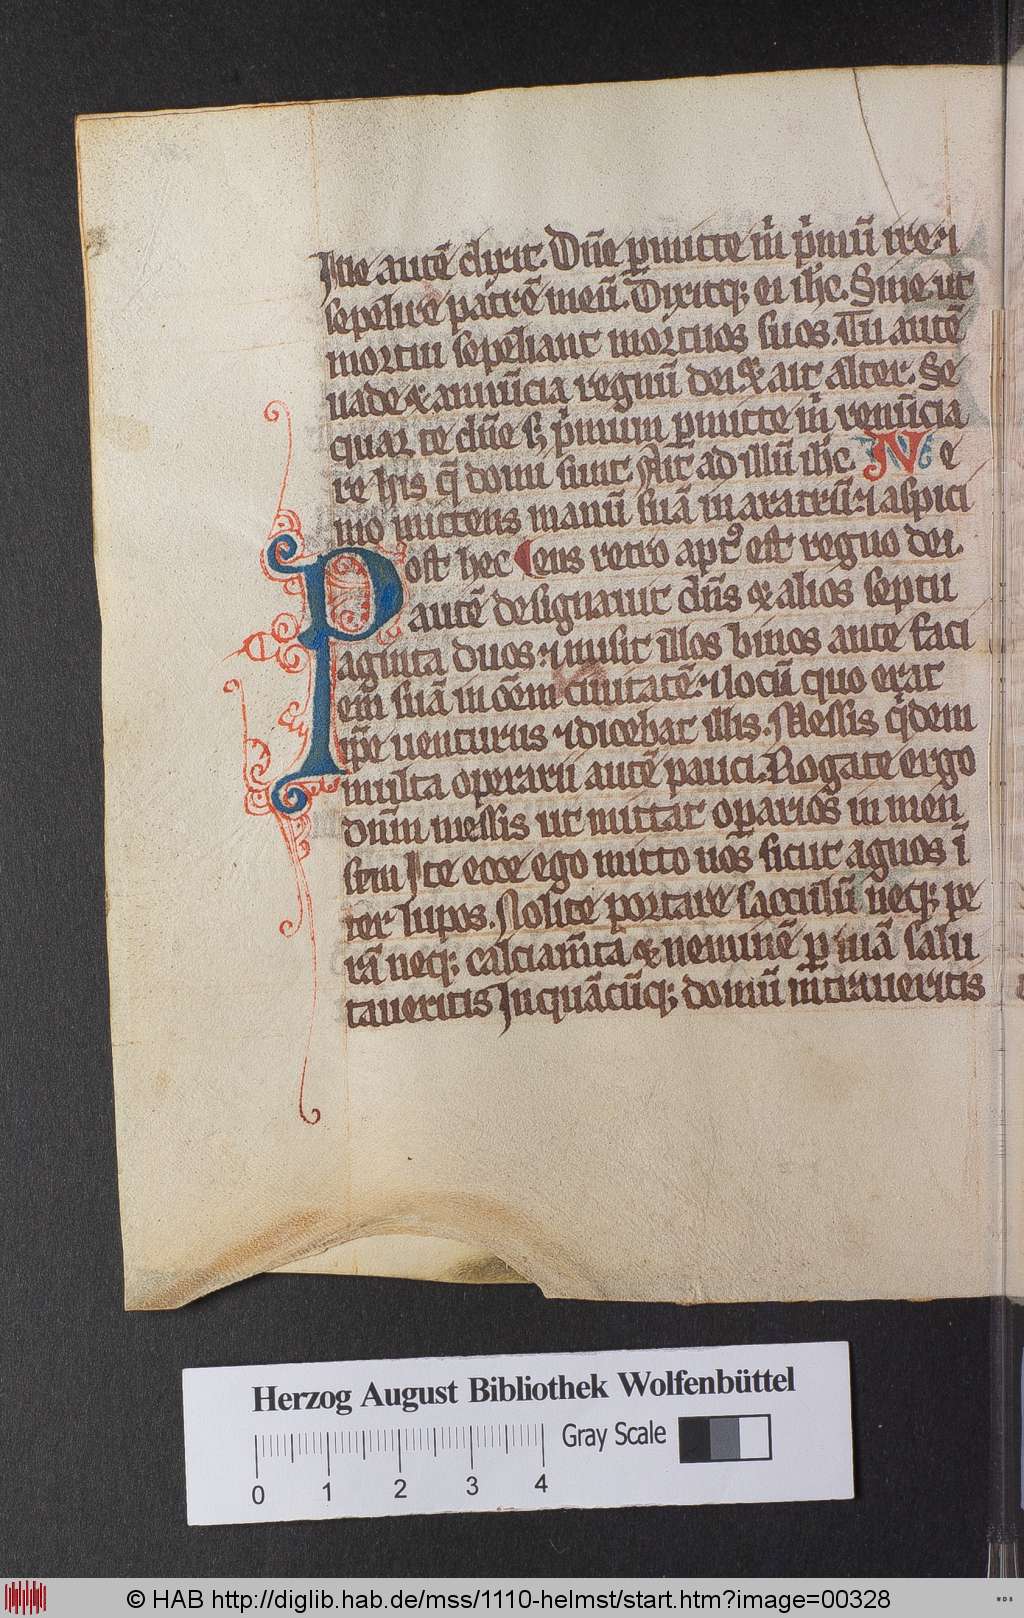 Ille autē dixit. Dn̄e ꝑmitte m̄ pⁱmū ire ⁊
sepelire patrē meū. Dixitqꝫ ei ih̄c. Sine ut
mortui sepeliant mortuos suos. Tu autē
uade & annūcia regnū dei. & ait alter. Se
quar te dn̄e sꝫ pⁱmum ꝑmitte m̄ renūcia
re hiis q̄ domi sunt. Ait ad illū ih̄c. Ne
mo mittens manū suā in aratrū ⁊ aspici
ost hec ens retro aptꝰ est regno dei.
P autē designauit dn̄s & alios septu
aginta duos ⁊ misit illos binos ante faci
em suā in oēm ciuitatē ⁊ locū quo erat
ip̄e uenturus ⁊ dicebat illis. Messis qⁱdem
multa operarii autē pauci. Rogate ergo
dn̄m messis ut mittat oꝑarios in men
sem Ite ecce ego mitto uos sicut agnos ī
ter lupos. Nolite portare sacculū neqꝫ pe
rā neqꝫ calciam̄ta & neminē ꝑ uiā salu
taueritis In quācūqꝫ domū īntraueritis
Herzog August Bibliothek Wolfenbüttel
Gray Scale
0 1 2 3 4
© HAB http://diglib.hab.de/mss/1110-helmst/start.htm?image=00328